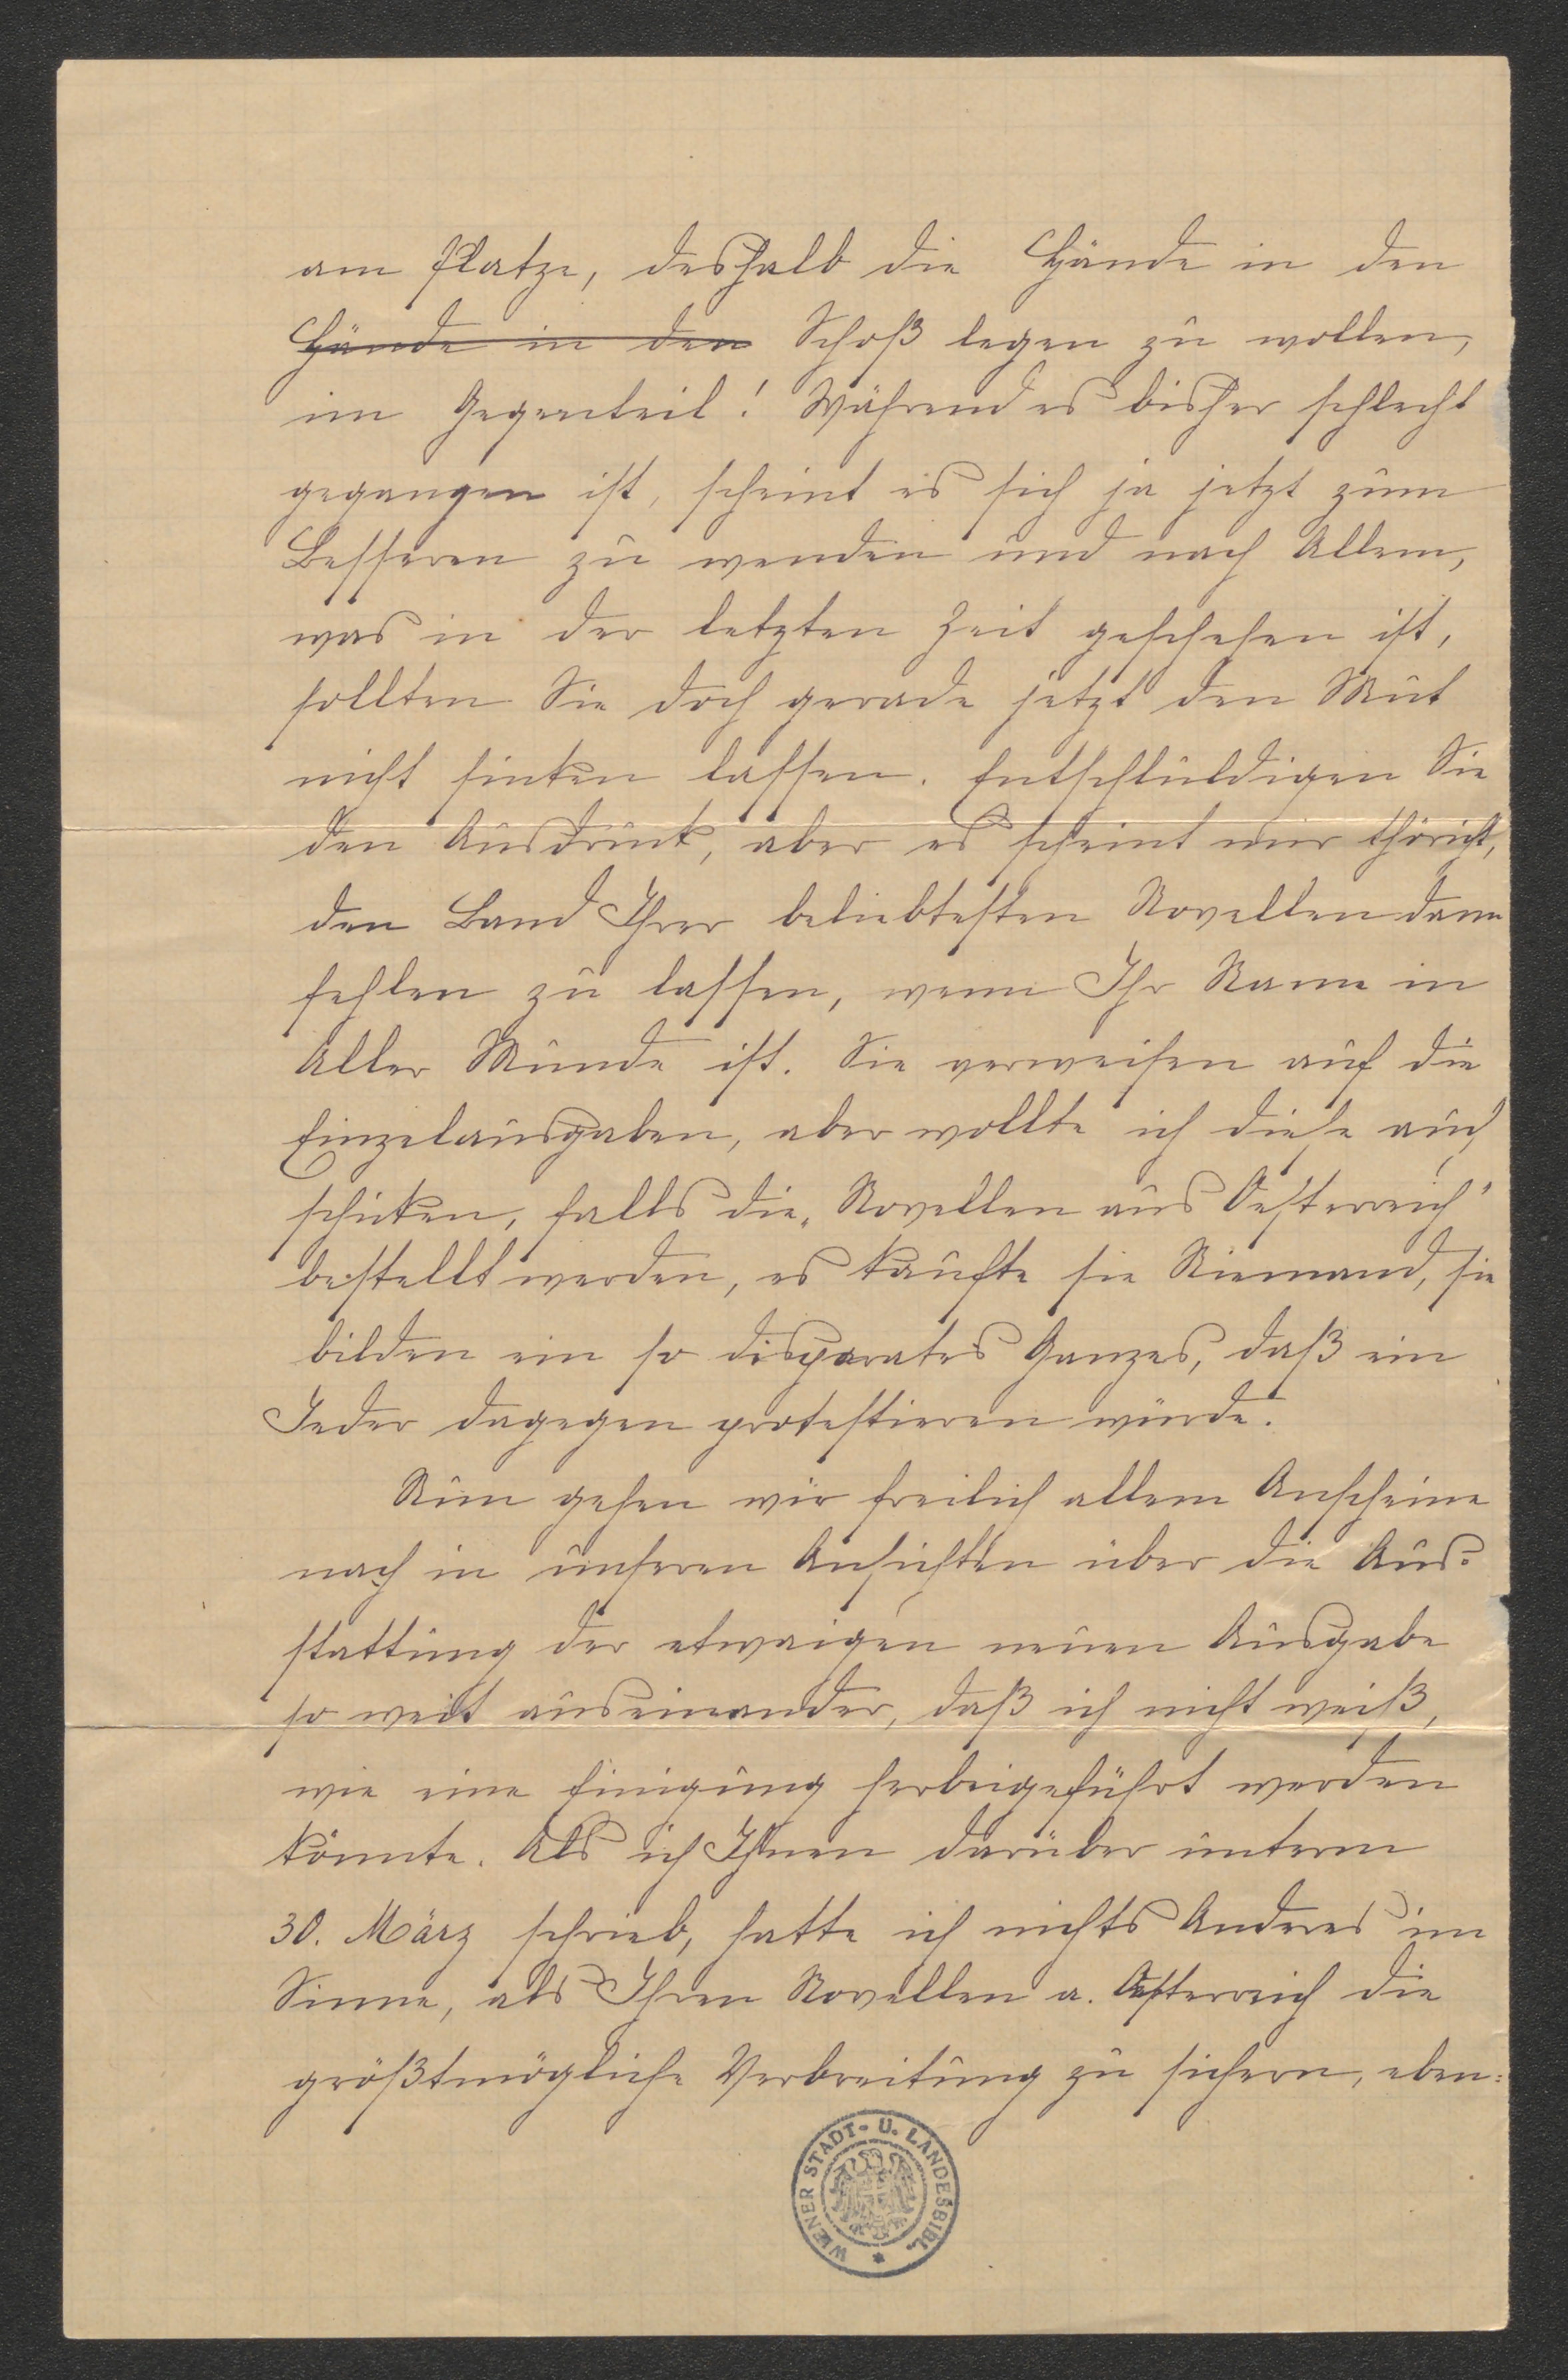 am Platze, deshalb die Hände in den
Hände in den Schoß legen zu wollen,
im Gegenteil! Während es bisher schlecht
gegangen ist, scheint es sich ja jetzt zum
Besseren zu wenden und nach Allem,
was in der letzten Zeit geschehen ist,
sollten Sie doch gerade jetzt den Mut
nicht sinken lassen. Entschuldigen Sie
den Ausdruck, aber es scheint mir thöricht,
den Band Ihrer beliebtesten Novellen dann
fehlen zu lassen, wenn Ihr Name in
Aller Munde ist. Sie verweisen auf die
Einzelausgaben, aber wollte ich diese auch
schicken, falls die „Novellen aus Oesterreich"
bestellt werden, es kaufte sie Niemand, sie
bilden ein so disparates Ganzes, daß ein
Jeder dagegen protestieren würde.
Nun gehen wir freilich allem Anscheine
nach in unseren Ansichten über die Aus-
stattung der etwaigen neuen Ausgabe
so weit auseinander, daß ich nicht weiß,
wie eine Einigung herbeigeführt werden
könnte. Als ich Ihnen darüber unterm
30. März schrieb, hatte ich nichts Anderes im
Sinne, als Ihren Novellen a. Oesterreich die
größtmögliche Verbreitung zu sichern, eben-
WIENER STADT- U. LANDESBIBL. *